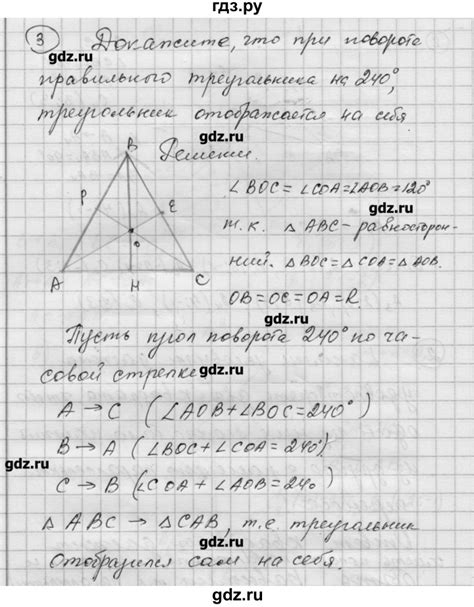 гдз.ру
3 Докажите, что при повороте
gdz.ru gdz.ru
правильного треугольника на 240°,
треугольник отображается на себя
gdz.ru
B Решении.
P E ∠BOC = ∠COA = ∠AOB = 120°
gdz.ru
o т.к. △ ABC – равносторон-
ний. △BOC = △COA = △AOB.
A H C
OB = OC = OA = R.
gdz.ru gdz.ru
Пусть угол поворота 240° по ча-
совой стрелке.
gdz.ru
A → C (∠AOB + ∠BOC = 240°)
B → A (∠BOC + ∠COA = 240°)
gdz.ru
C → B (∠COA + ∠AOB = 240)
gdz.ru
△ ABC → △CAB, т.е. треугольник
gdz.ru
Отобразился сам на себя.
gdz.ru